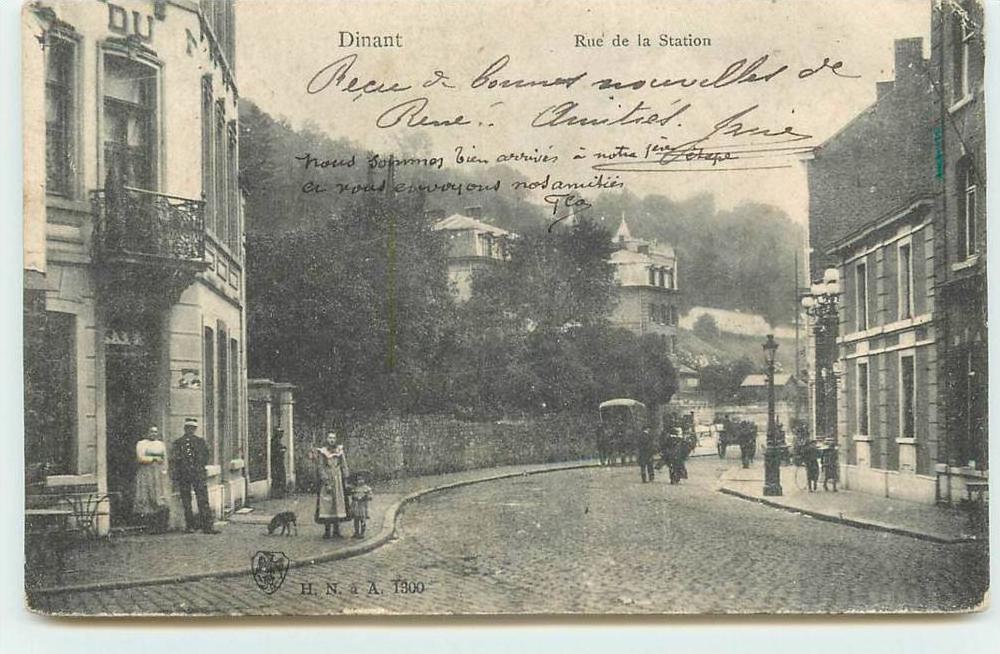 DU
Dinant
Rue de la Station
Reçu de bonnes nouvelles de
René.. Amitiés.
nous sommes bien arrivés à notre 1ère étape
et vous envoyons nos amitiés
H. N. à A. 1300